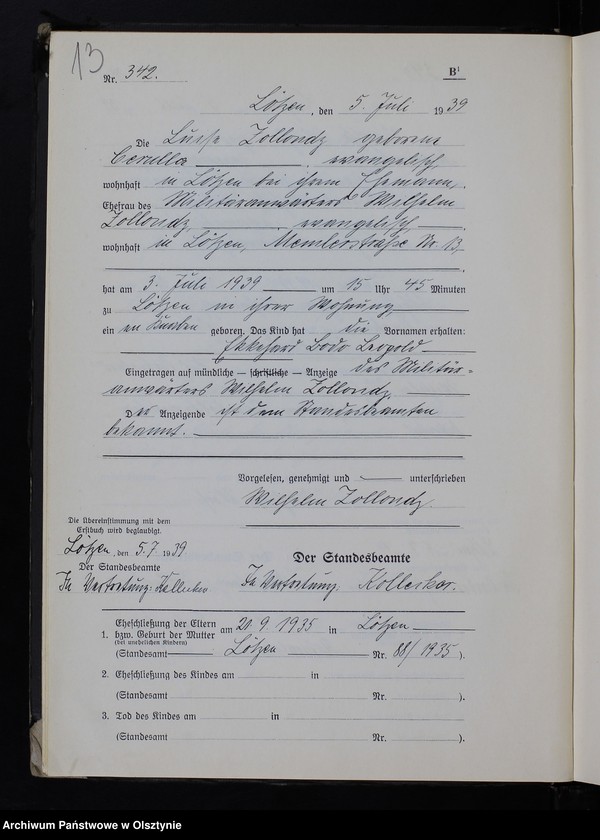 13
Nr. 342. B1
Lötzen, den 5. Juli 1939
Die Luise Zollondz geborene
Cerulla, evangelisch
wohnhaft in Lötzen bei ihrem Ehemann,
Ehefrau des Militäranwärters Wilhelm
Zollondz, evangelisch,
wohnhaft in Lötzen, Memlerstraße Nr. 13,
hat am 3. Juli 1939 um 15 Uhr 45 Minuten
zu Lötzen in ihrer Wohnung
ein en Knaben geboren. Das Kind hat die Vornamen erhalten:
Ekkehard Bodo Leopold
Eingetragen auf mündliche — schriftliche — Anzeige des Militär=
anwärters Wilhelm Zollondz
Der Anzeigende ist dem Standesbeamten
bekannt.
Vorgelesen, genehmigt und unterschrieben
Wilhelm Zollondz
Die Übereinstimmung mit dem
Erstbuch wird beglaubigt.
Lötzen, den 5.7.1939
Der Standesbeamte
In Vertretung:
Der Standesbeamte
In Vertretung:
Eheschließung der Eltern
1. bzw. Geburt der Mutter am 20.9.1935 in Lötzen
(bei unehelichen Kindern)
(Standesamt Lötzen Nr. 88/1935).
2. Eheschließung des Kindes am in
(Standesamt Nr. ).
3. Tod des Kindes am in
(Standesamt Nr. ).
Archiwum Państwowe w Olsztynie